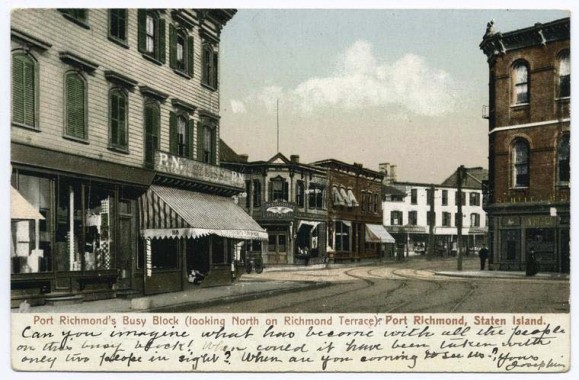 Port Richmond's Busy Block (looking North on Richmond Terrace) Port Richmond, Staten Island.
Can you imagine what has become with all the people
on this busy block! When could it have been taken with
only two people in sight? When are you coming to see us? Yours
Josephine